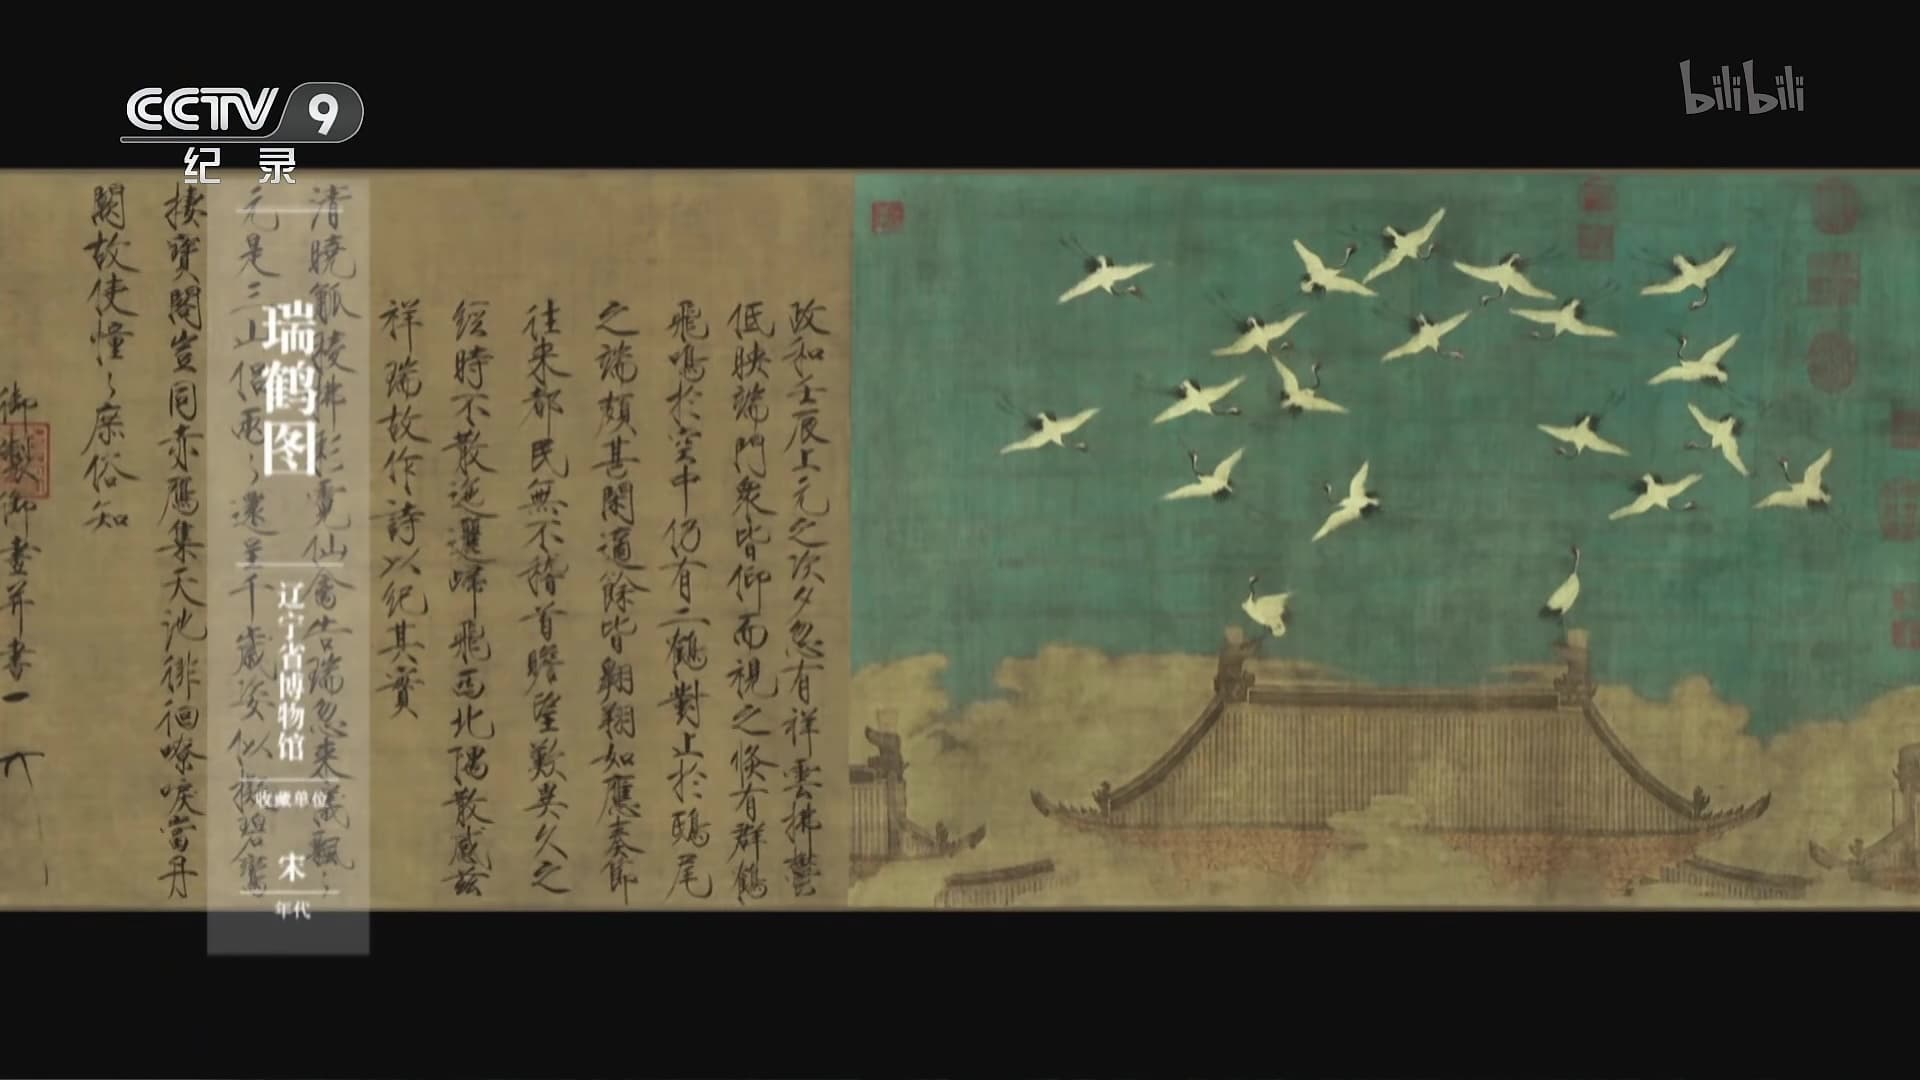 CCTV 9
纪 录
bilibili
政和壬辰上元之次夕忽有祥雲拂鬱
低映端門衆皆仰而視之倏有群鶴
飛鳴於空中仍有二鶴對止於鴟尾
之端頗甚閑適餘皆翱翔如應奏節
往来都民無不稽首瞻望歎異久之
経時不散迤邐歸飛西北隅散感茲
祥瑞故作詩以紀其實
清曉觚稜拂彩霓仙禽告瑞忽来儀飄〻
元是三山侣兩〻還呈千歲姿似擬碧鸞
捿寳閣豈同赤鴈集天池徘徊嘹唳當丹
闕故使憧〻庶俗知
御製御畫并書
瑞鹤图
辽宁省博物馆
收藏单位
宋
年代